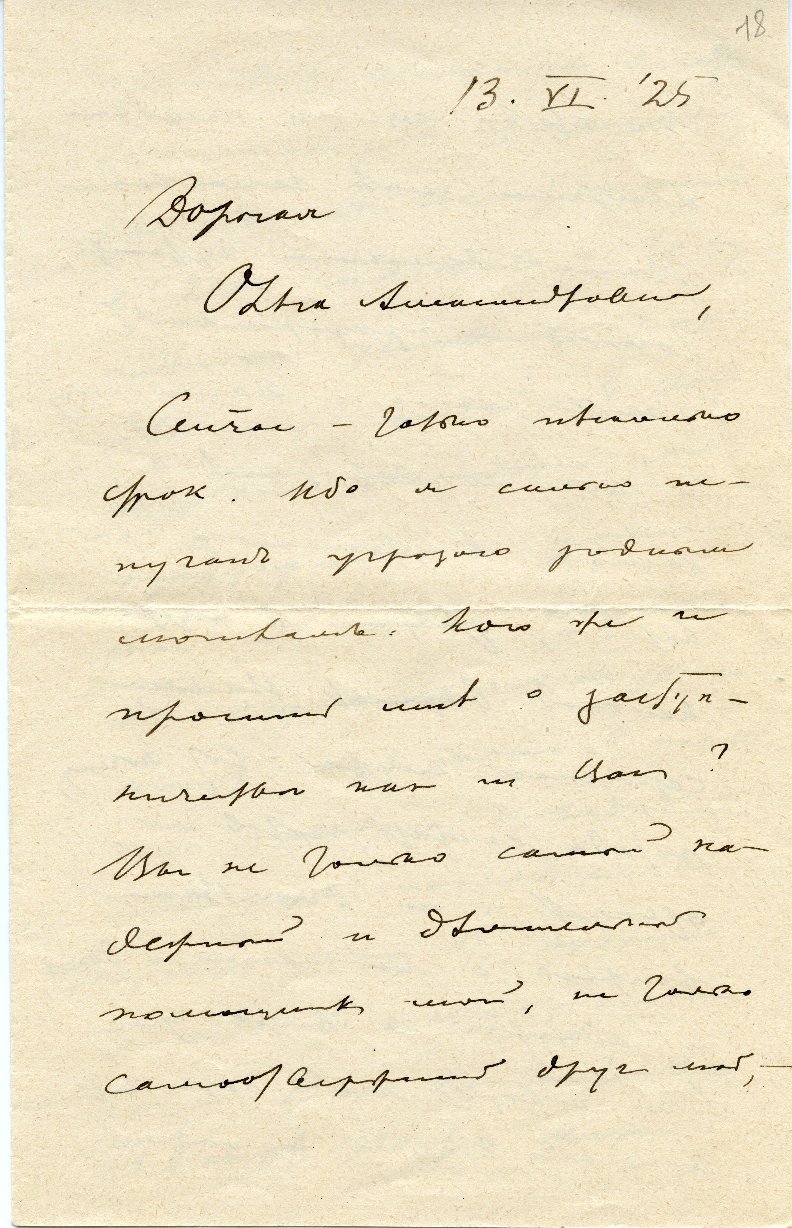 18
13. VI. '25
Дорогая
Ольга Александровна,
Сейчас – только несколько
строк. Ибо я сильно на-
пуган угрозою родным
могилам. Кого же и
просить мне о заступ-
ничестве как не Вас?
Вы не только самый на-
дежный и деятельный
помощник мой, не только
самоотверженный друг мой, –